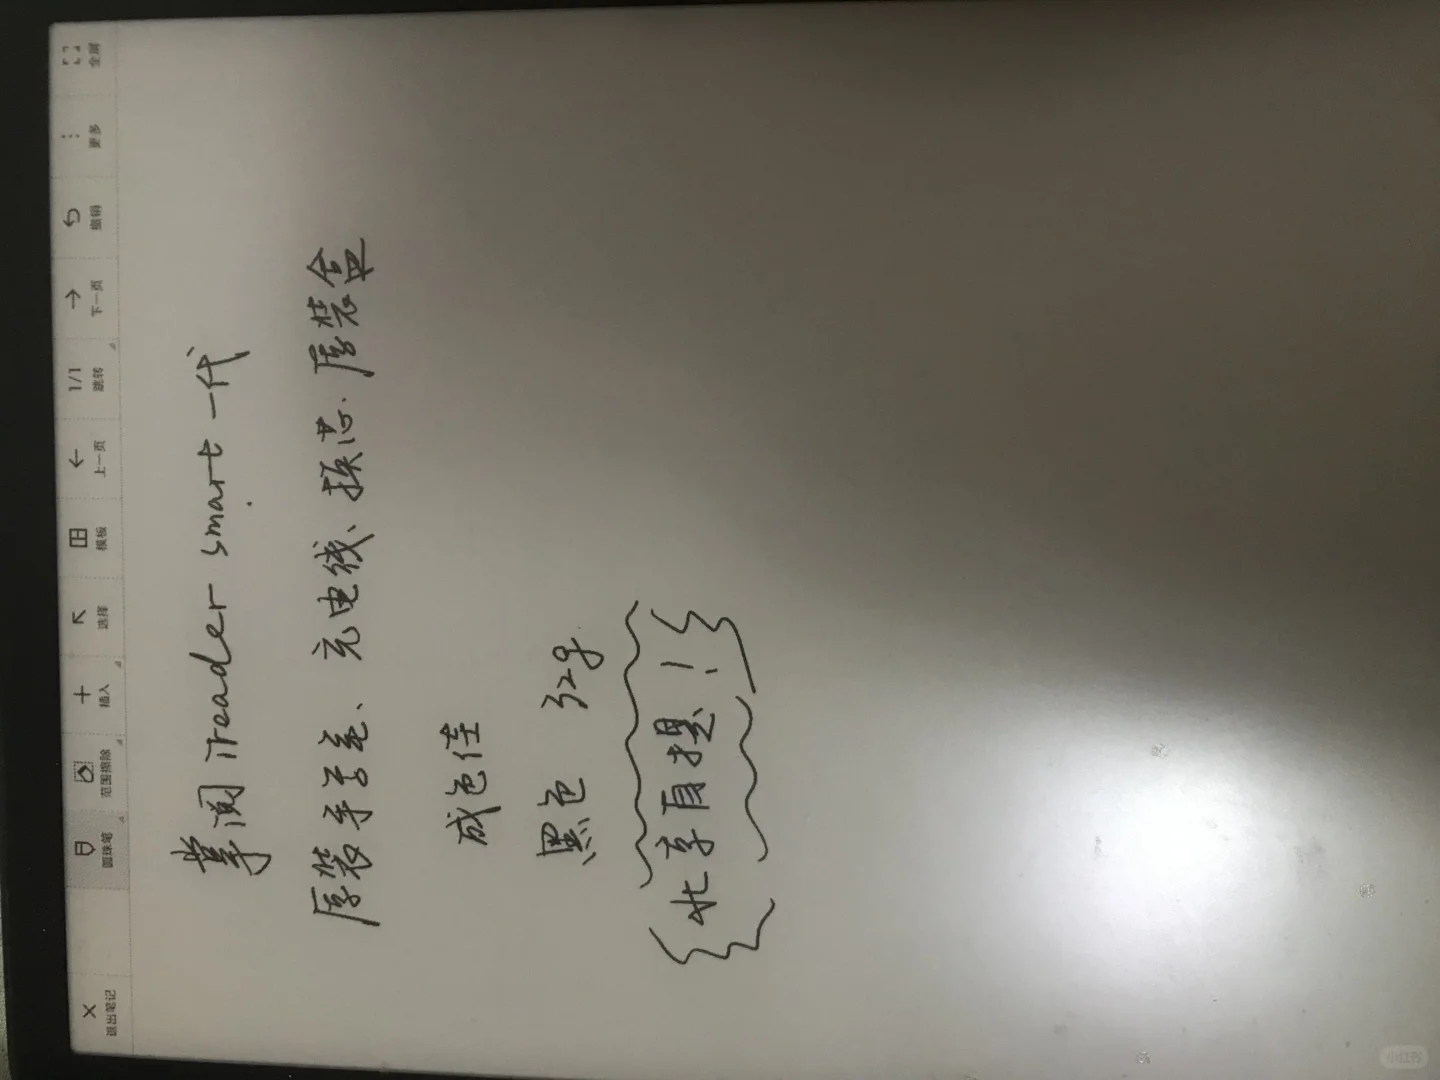 × 退出笔记
圆珠笔
范围擦除
插入
选择
模板
上一页
1/1 跳转
下一页
撤销
更多
全屏
掌阅 iReader smart 一代
原装手写笔、充电线、换芯、原装盒
成色佳
黑色 32g
北京自提！
小红书